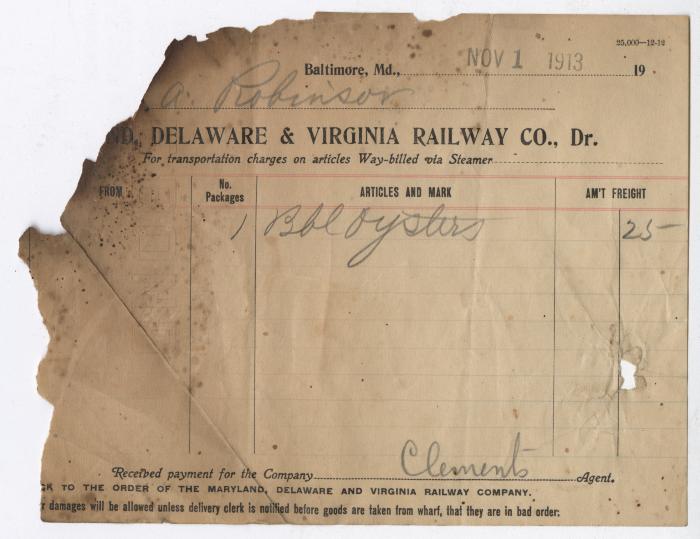 25,000—12-12
Baltimore, Md., NOV 1 1913 19
A. Robinson
ND, DELAWARE & VIRGINIA RAILWAY CO., Dr.
For transportation charges on articles Way-billed via Steamer
FROM No. Packages ARTICLES AND MARK AM'T FREIGHT
1 Bbl Oysters 25
Received payment for the Company Clements Agent.
CK TO THE ORDER OF THE MARYLAND, DELAWARE AND VIRGINIA RAILWAY COMPANY.
r damages will be allowed unless delivery clerk is notified before goods are taken from wharf, that they are in bad order.